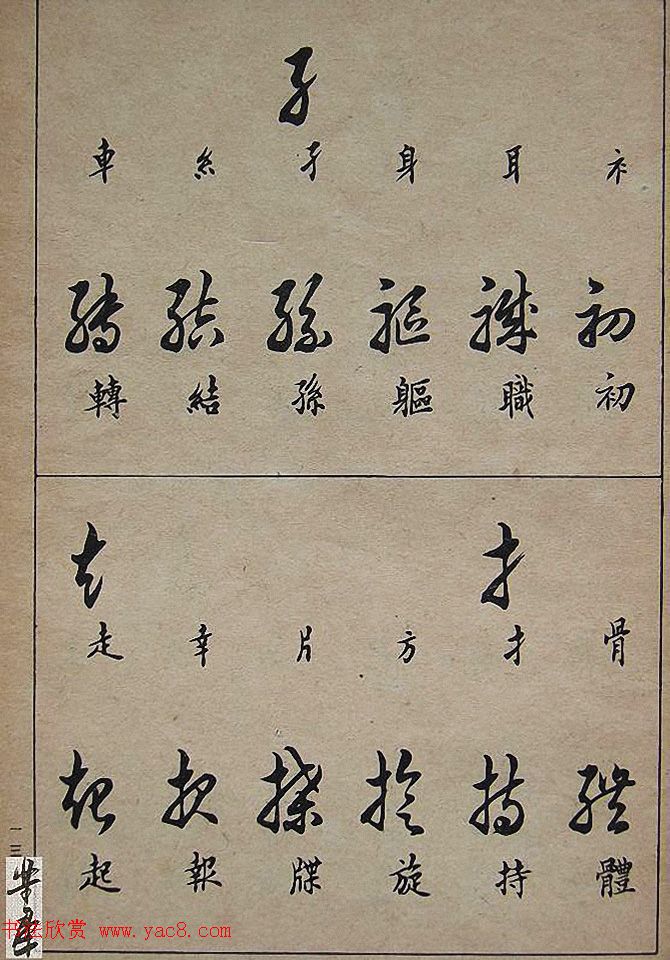 子
衤 耳 身 子 糸 車
初 職 軀 孫 結 轉
初 職 軀 孫 結 轉
才 走
骨 才 方 片 幸 走
體 持 旋 牒 報 起
體 持 旋 牒 報 起
一三
书法欣赏 www.yac8.com